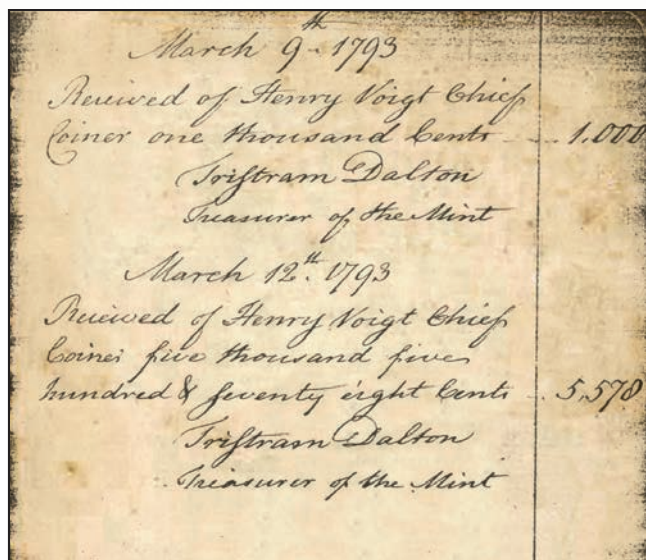 March 9th 1793
Received of Henry Voigt Chief
Coiner one thousand Cents 1.000
Tristram Dalton
Treasurer of the Mint
March 12th. 1793
Received of Henry Voigt Chief
Coiner five thousand five
hundred & seventy eight Cents 5,578
Tristram Dalton
Treasurer of the Mint